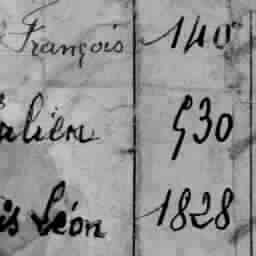 François 140
alien 530
is Léon 1828